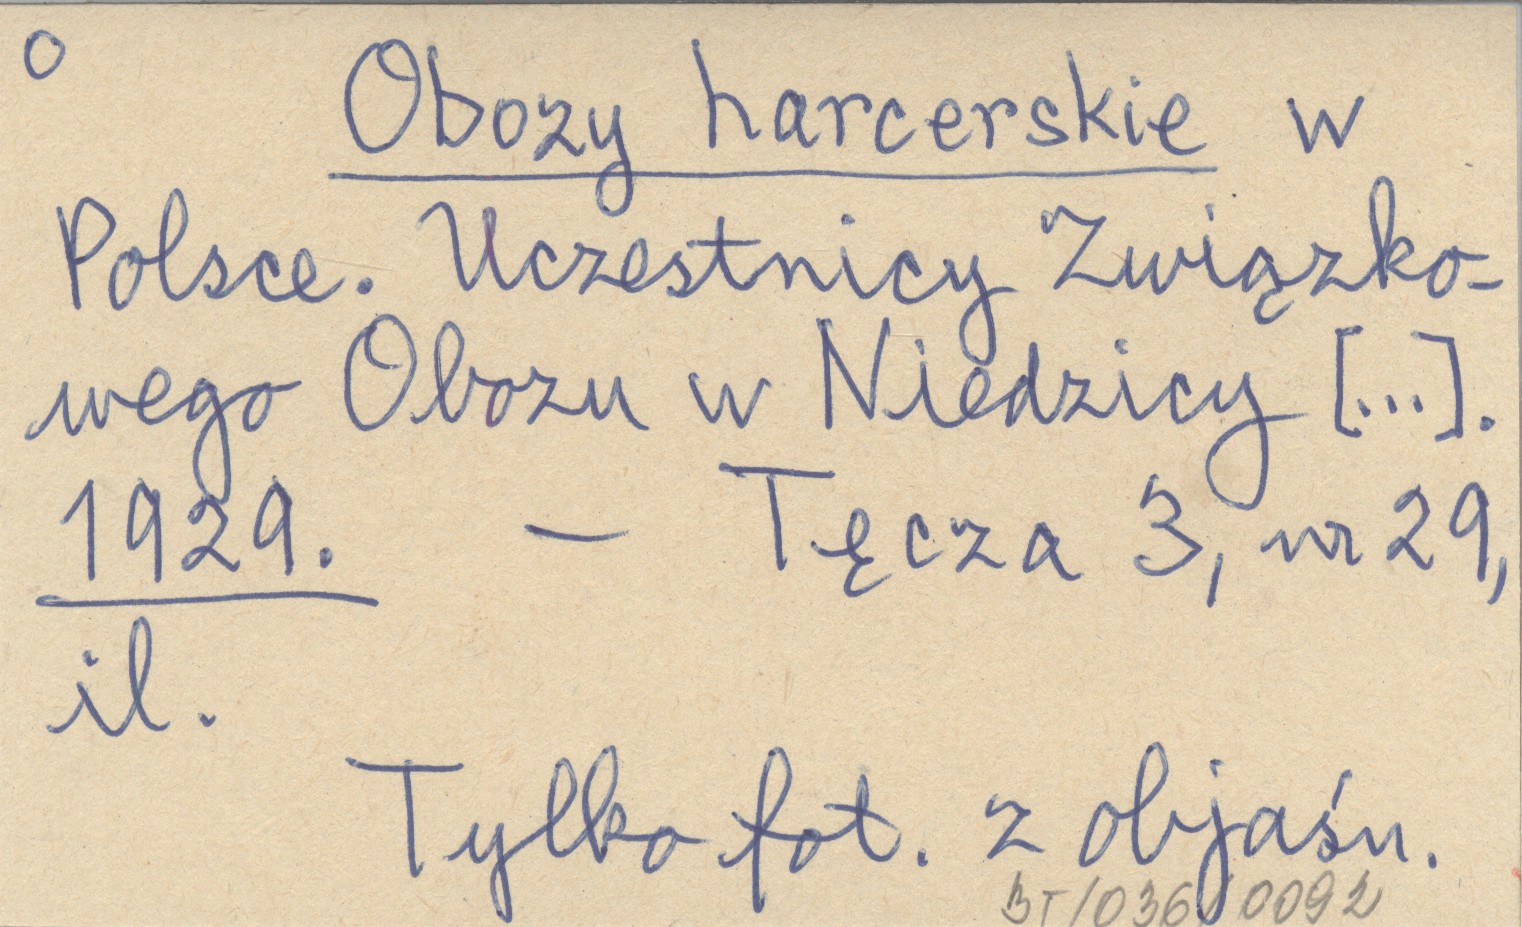 O
Obozy harcerskie w
Polsce. Uczestnicy Związko-
wego Obozu w Niedzicy [...].
1929. — Tęcza 3, nr 29,
il.
Tylko fot. z objaśn.
BT/036/0092